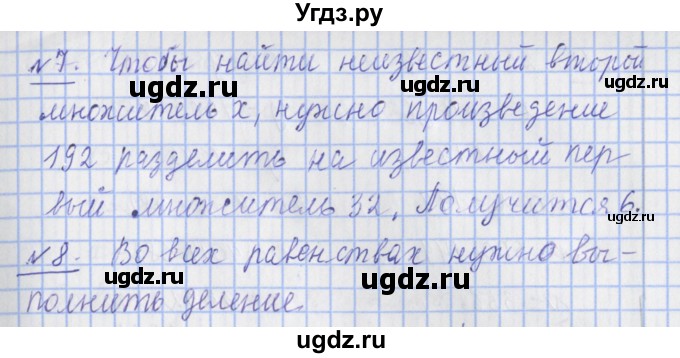 Угдз.ру
№7. Чтобы найти неизвестный второй
множитель x, нужно произведение
192 разделить на известный пер-
вый множитель 32. Получится 6.
№8. Во всех равенствах нужно вы-
полнить деление.
ugdz.ru ugdz.ru
ugdz.ru ugdz.ru
ugdz.ru ugdz.ru
ugdz.ru ugdz.ru
ugdz.ru